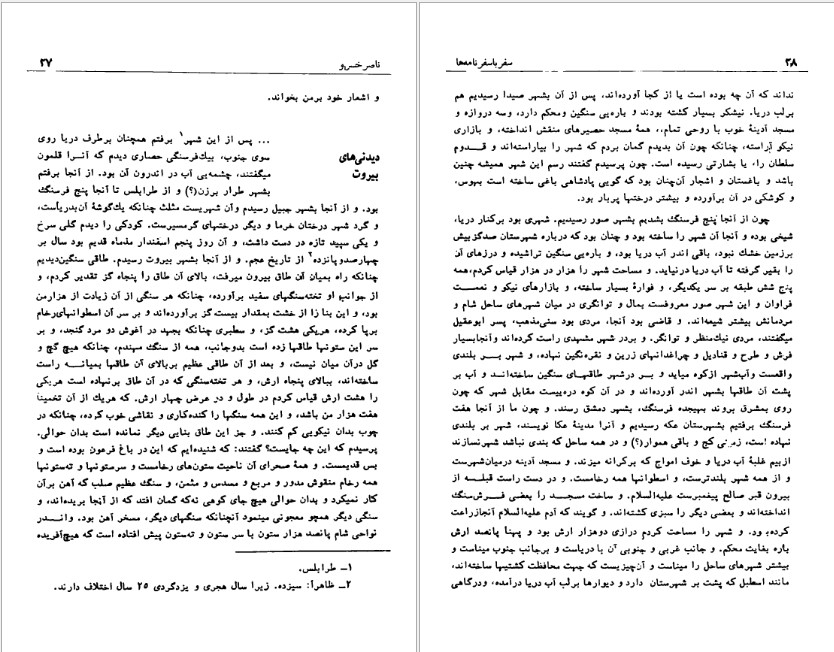 ناصر خسرو ۲۷
و اشعار خود برمن بخواند.
دیدنی‌های
بیروت
... پس از این شهر۱ برفتم همچنان برطرف دریا روی
سوی جنوب، بیك‌فرسنگی حصاری دیدم که آنـرا قلمون
میگفتند، چشمه‌یی آب در اندرون آن بود. از آنجا برفتم
بشهر طرار برزن(؟) و از طرابلس تا آنجا پنج فرسنگ
بود. و از آنجا بشهر جبیل رسیدم وآن‌شهریست مثلث چنانکه یك‌گوشهٔ آن‌بدریاست،
و گرد شهر درختان خرما و دیگر درختهای گرمسیرست. کودکی را دیدم گلی سرخ
و یکی سپید تازه در دست داشت، و آن روز پنجم اسفندار مذماه قدیم بود سال بر
چهارصدوپانزده۲ از تاریخ عجم. و از آنجا بشهر بیروت رسیدم. طاقی سنگین‌دیدیم
چنانکه راه بمیان آن طاق بیرون میرفت، بالای آن طاق را پنجاه گز تقدیر کردم، و
از جوانب او تخته‌سنگهای سفید برآورده، چنانکه هر سنگی از آن زیادت از هزارمن
بود، و این بنا را از خشت بمقدار بیست گز برآورده‌اند و بر سر آن اسطوانهای‌رخام
برپا کرده، هریکی هشت گز، و سطبری چنانکه بجهد در آغوش دو مرد گنجد، و بر
سر این ستونها طاقها زده است بدوجانب، همه از سنگ مهندم، چنانکه هیچ گچ و
گل درآن میان نیست، و بعد از آن طاقی عظیم بربالای آن طاقها بمیانـــه راست
ساخته‌اند، ببالای پنجاه ارش، و هر تخته‌سنگی که در آن طاق برنهاده است هریکی
را هشت ارش قیاس کردم در طول و در عرض چهار ارش. که هریك از آن تخمیناً
هفت هزار من باشد، و این همه سنگها را کنده‌کاری و نقاشی خوب کرده، چنانکه در
چوب بدان نیکویی کم کنند. و جز این طاق بنایی دیگر نمانده است بدان حوالی.
پرسیدم که این چه جایست؟ گفتند: که شنیده‌ایم که این در باغ فرعون بوده است و
بس قدیمست. و همهٔ صحرای آن ناحیت ستون‌های رخامست و سرستونها و ته‌ستونها
همه رخام منقوش مدور و مربع و مسدس و مثمن، و سنگ عظیم صلب که آهن برآن
کار نمیکرد و بدان حوالی هیچ جای کوهی نه‌که گمان افتد که از آنجا بریده‌اند، و
سنگی دیگر همچو معجونی مینمود آنچنانکه سنگهای دیگر، مسخر آهن بود. وانـــدر
نواحی شام پانصد هزار ستون یا سر ستون و ته‌ستون پیش افتاده است که هیچ‌آفریده
۱ــ طرابلس.
۲ــ ظاهراً: سیزده. زیرا سال هجری و یزدگردی ۲۵ سال اختلاف دارند.
۲۸ سفر با سفرنامه‌ها
نداند که آن چه بوده است یا از کجا آورده‌اند، پس از آن بشهر صیدا رسیدیم هم
برلب دریا. نیشکر بسیار کشته بودند و باره‌یی سنگین ومحکم دارد، وسه دروازه و
مسجد آدینهٔ خوب با روحی تمام، همهٔ مسجد حصیرهای منقش انداخته، و بازاری
نیکو آراسته، چنانکه چون آن بدیدم گمان بردم که شهر را بیاراسته‌اند و قـــدوم
سلطان را، یا بشارتی رسیده است. چون پرسیدم گفتند رسم این شهر همیشه چنین
باشد و باغستان و اشجار آن‌چنان بود که گویی پادشاهی باغی ساخته است بهوس،
و کوشکی در آن برآورده و بیشتر درختها پربار بود.
چون از آنجا پنج فرسنگ بشدیم بشهر صور رسیدیم. شهری بود برکنار دریا،
شیخی بوده و آنجا آن شهر را ساخته بود و چنان بود که درباره شهرستان صدگزبیش
برزمین خشك نبود، باقی اندر آب دریا بود، و باره‌یی سنگین تراشیده و درزهای آن
را بقیر گرفته تا آب دریا درنیاید. و مساحت شهر را هزار در هزار قیاس کردم،همه
پنج شش طبقه بر سر یکدیگر، و فوارهٔ بسیار ساخته، و بازارهای نیکو و نعمت
فراوان و این شهر صور معروفست بمال و توانگری در میان شهرهای ساحل شام و
مردمانش بیشتر شیعه‌اند. و قاضی بود آنجا، مردی بود سنی‌مذهب، پسر ابوعقیل
میگفتند، مردی نیك‌منظر و توانگر. و بردر شهر مشهدی راست کرده‌اند وآنجابسیار
فرش و طرح و قنادیل و چراغدانهای زرین و نقره‌نگین نهاده، و شهر بـــر بلندی
واقعست وآب‌شهر ازکوه میاید و بـر درشهر طاقهـای سنگین ساخته‌انـد و آب بر
پشت آن طاقها بشهر اندر آورده‌اند و در آن کوه دره‌ییست مقابل شهر که چون
روی بمشرق بروند بهیجده فرسنگ، بشهر دمشق رسند. و چون ما از آنجا هفت
فرسنگ برفتیم بشهرستان عکه رسیدیم و آنرا مدینهٔ عکا نویسند، شهر بر بلندی
نهاده است، زمینی کج و باقی هموار(؟) و در همه ساحل که بلندی نباشد شهرنسازند
ازبیم غلبهٔ آب دریا و خوف امواج که برکرانه میزند. و مسجد آدینه درمیان‌شهرست
و از همه شهر بلندترست، و اسطوانها همه رخامست. و در دست راست قبلـــه از
بیرون قبر صالح پیغمبرست علیه‌السلام. و ساخت مسجـــد را بعضی فـــرش‌سنگ
انداخته‌اند و بعضی دیگر را سبزی کشته‌اند. و گویند که آدم علیه‌السلام آنجازراعت
کرده‌بود. و شهر را مساحت کردم درازی دوهزار ارش بود و پهنا پانصد ارش
باره بغایت محکم. و جانب غربی و جنوبی آن با دریاست و برجانب جنوب میناست و
بیشتر شهرهای ساحل را میناست و آن‌چیزیست که جهت محافظت کشتیها ساخته‌اند،
مانند اسطبل که پشت بر شهرستان دارد و دیوارها برلب آب دریا درآمده، ودرگاهی